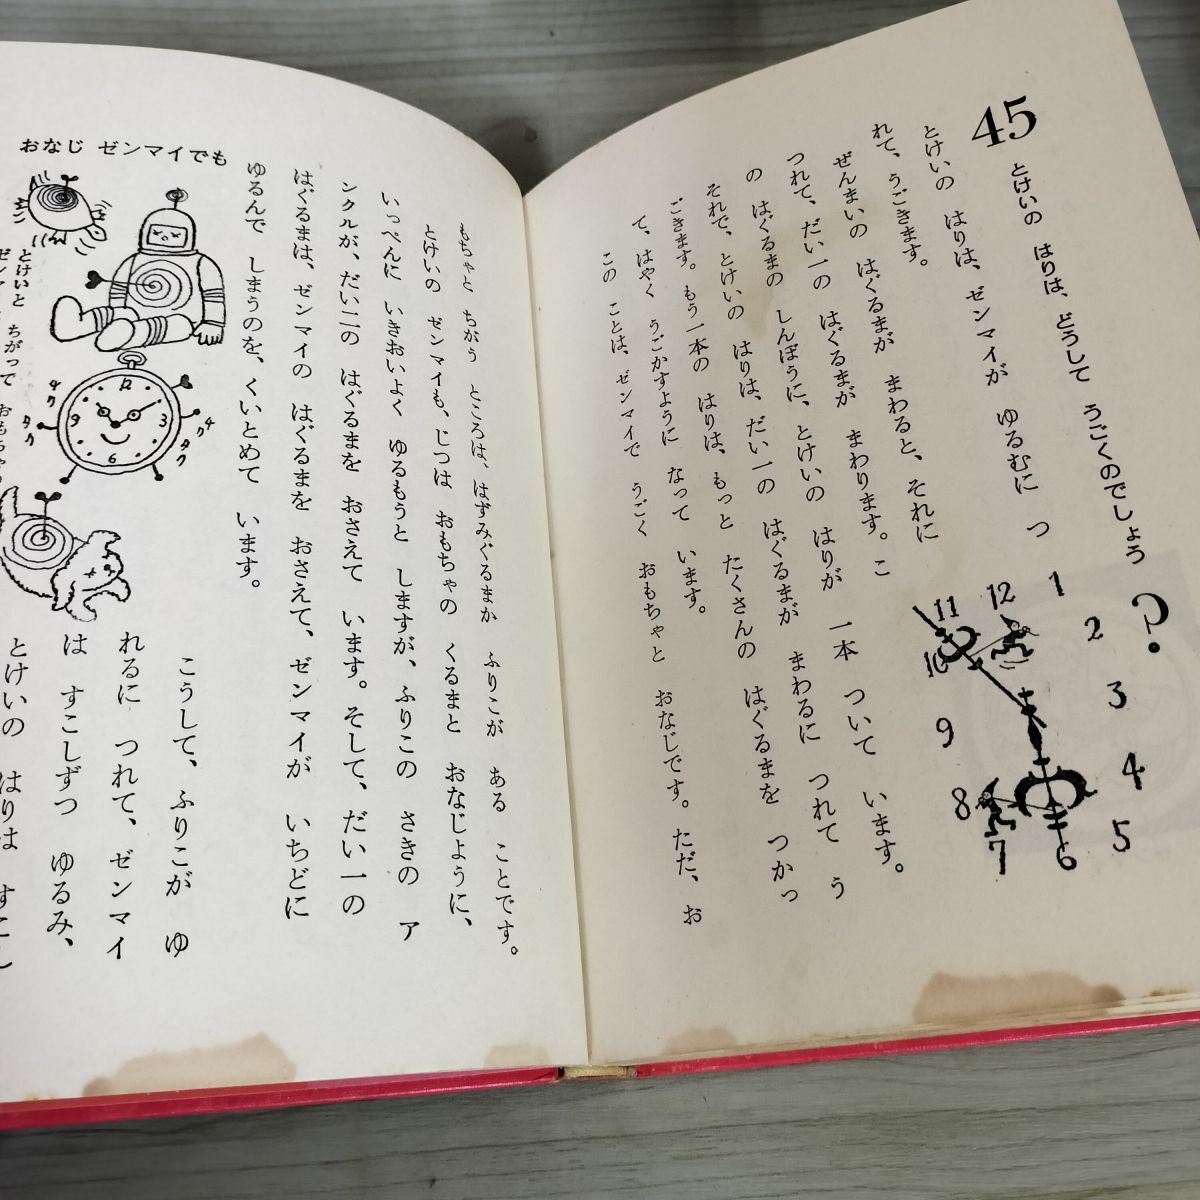 45
とけいの はりは、どうして うごくのでしょう
?
とけいの はりは、ゼンマイが ゆるむに つ
れて、うごきます。
ぜんまいの はぐるまが まわると、それに
つれて、だい一の はぐるまが まわります。こ
の はぐるまの しんぼうに、とけいの はりが 一本 ついて います。
それで、とけいの はりは、だい一の はぐるまが まわるに つれて う
ごきます。もう一本の はりは、もっと たくさんの はぐるまを つかっ
て、はやく うごかすように なって います。
この ことは、ゼンマイで うごく おもちゃと おなじです。ただ、お
11
12
1
2
3
4
5
6
7
8
9
10
もちゃと ちがう ところは、はずみぐるまか ふりこが ある ことです。
とけいの ゼンマイも、じつは おもちゃの くるまと おなじように、
いっぺんに いきおいよく ゆるもうと しますが、ふりこの さきの ア
ンクルが、だい二の はぐるまを おさえて います。そして、だい一の
はぐるまは、ゼンマイの はぐるまを おさえて、ゼンマイが いちどに
ゆるんで しまうのを、くいとめて います。
こうして、ふりこが ゆ
れるに つれて、ゼンマイ
は すこしずつ ゆるみ、
とけいの はりは すこし
おなじ ゼンマイでも
とけいと ちがって おもちゃ
12
3
6
9
チクタク
チクタク